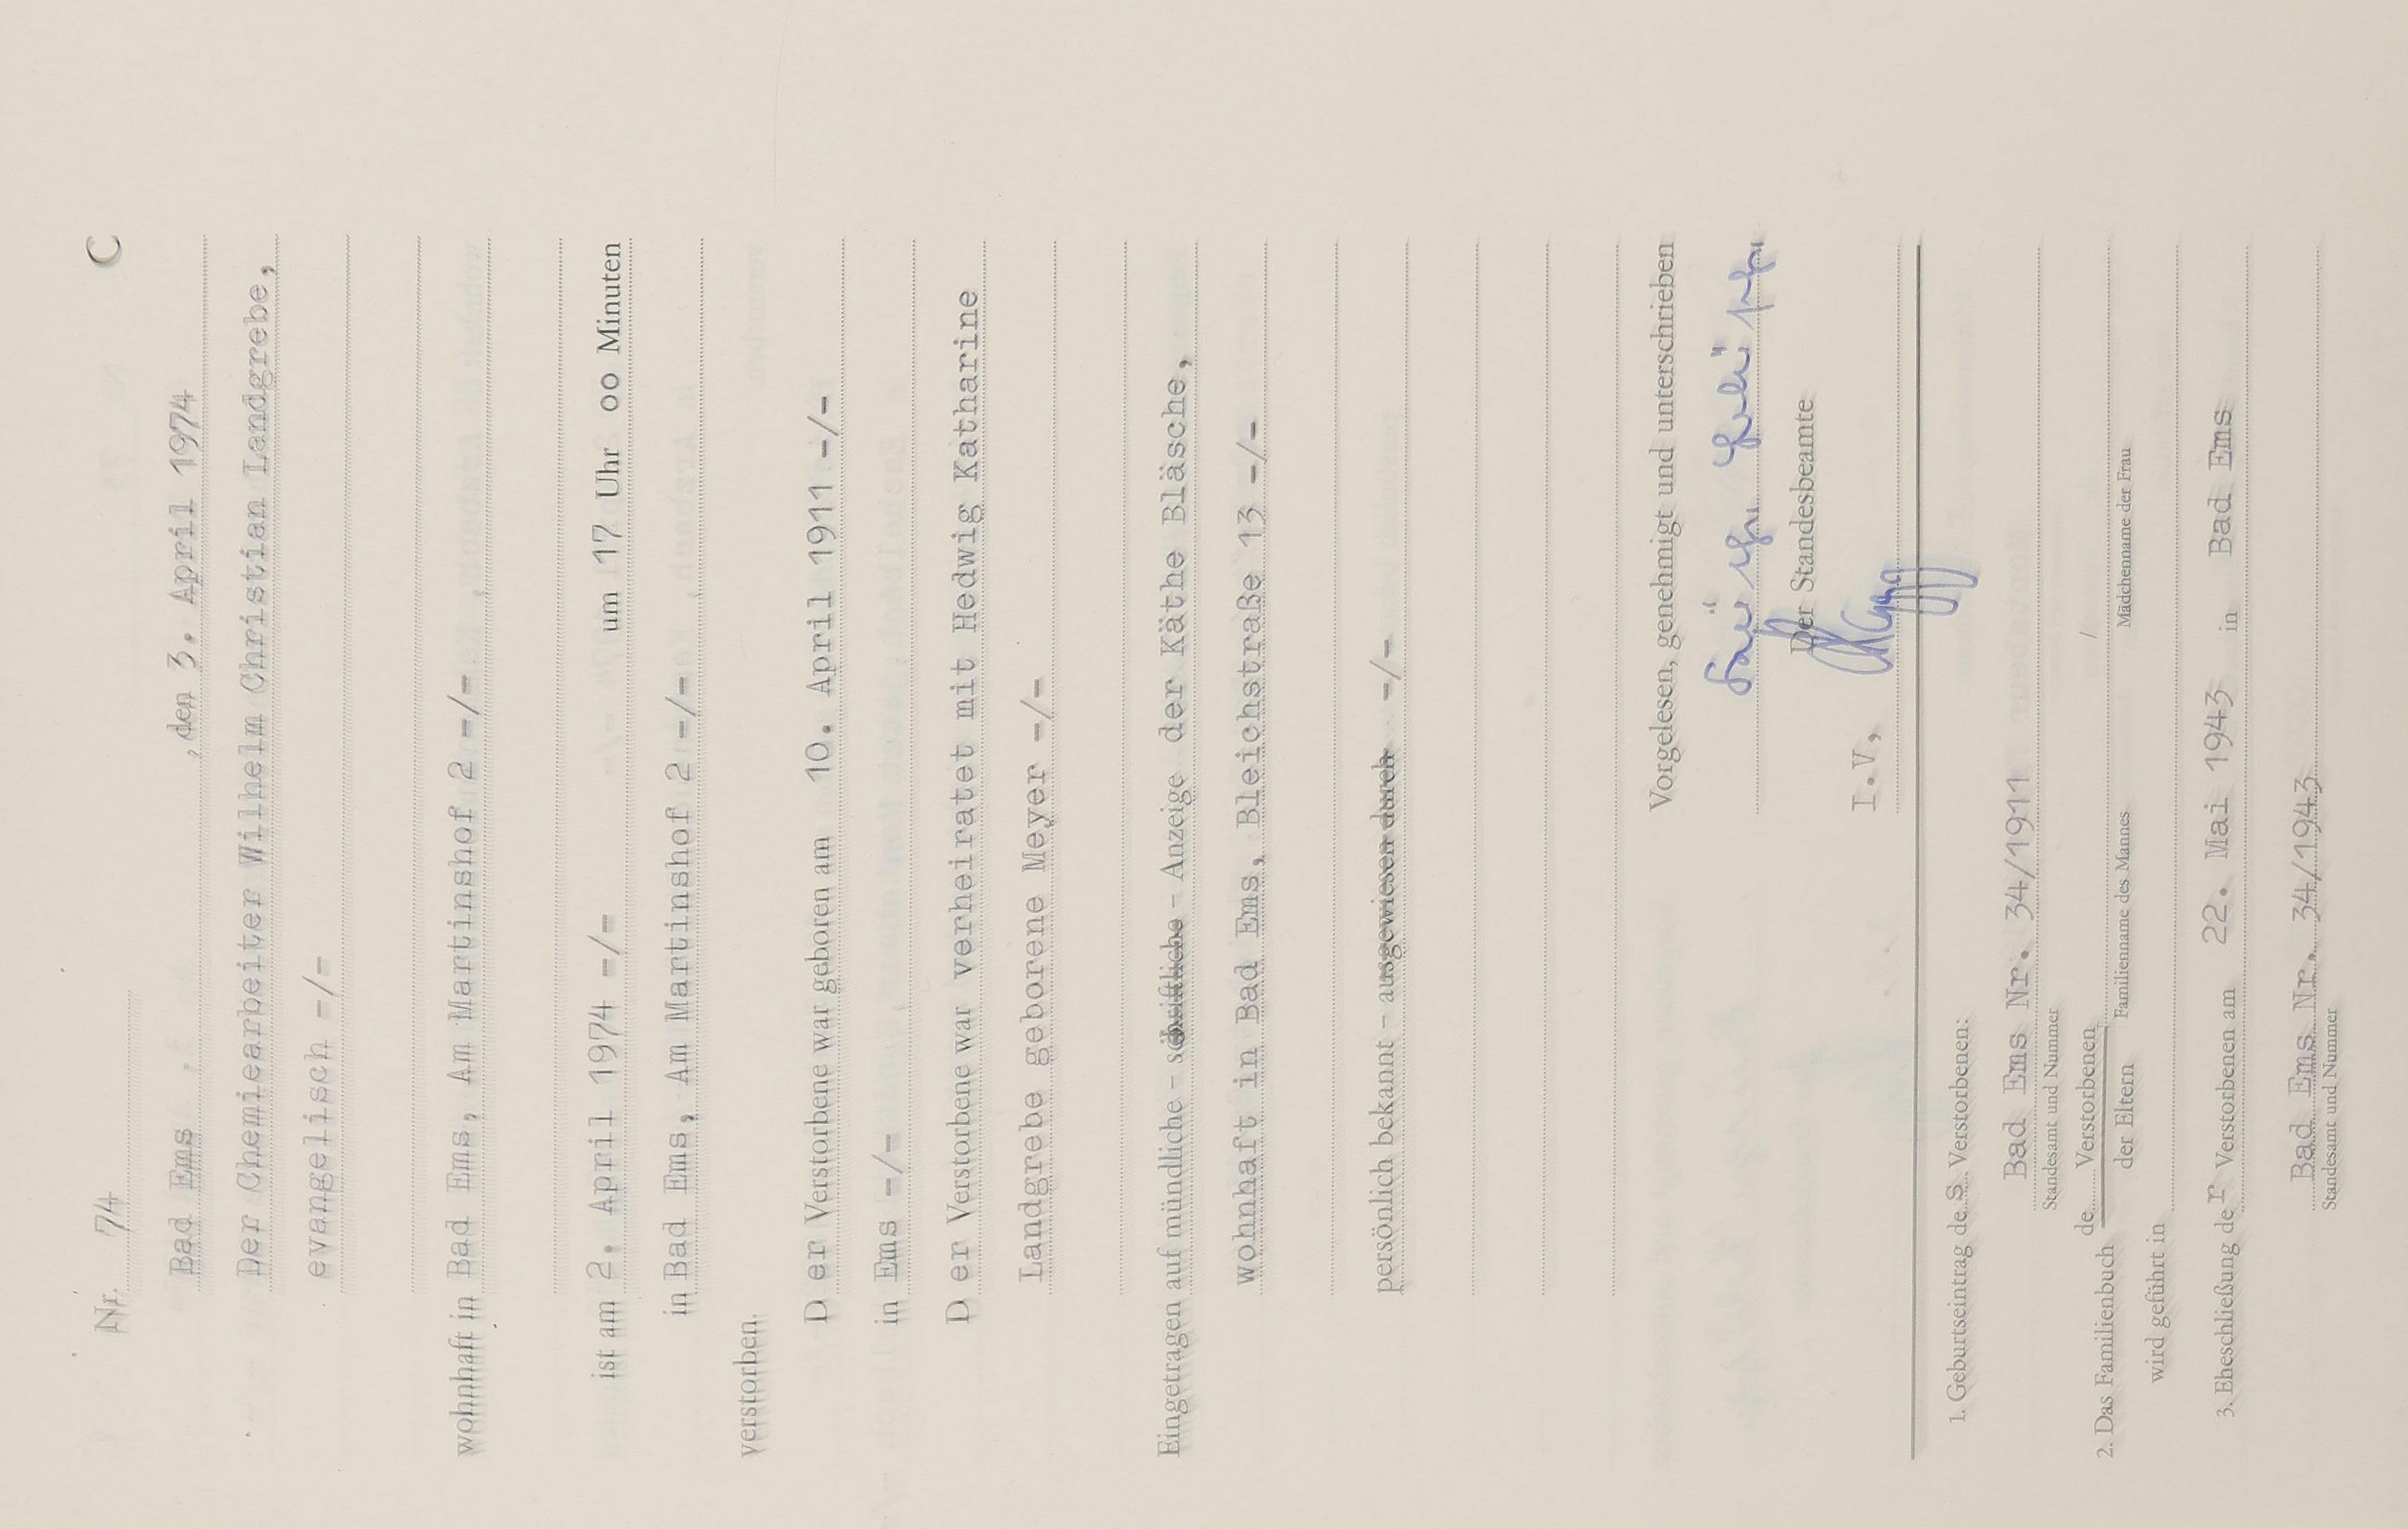 C
Nr. 74
Bad Ems , den 3. April 1974
Der Chemiearbeiter Wilhelm Christian Landgrebe,
evangelisch -/-
wohnhaft in Bad Ems, Am Martinshof 2 -/-
ist am 2. April 1974 -/- um 17 Uhr 00 Minuten
in Bad Ems, Am Martinshof 2 -/-
verstorben.
D er Verstorbene war geboren am 10. April 1911 -/-
in Ems -/-
D er Verstorbene war verheiratet mit Hedwig Katharine
Landgrebe geborene Meyer -/-
Eingetragen auf mündliche - schriftliche - Anzeige der Käthe Bläsche,
wohnhaft in Bad Ems, Bleichstraße 13 -/-
persönlich bekannt - ausgewiesen durch -/-
Vorgelesen, genehmigt und unterschrieben
Der Standesbeamte
I.V,
1. Geburtseintrag des Verstorbenen:
Bad Ems Nr. 34/1911
Standesamt und Nummer
2. Das Familienbuch de Verstorbenen /
der Eltern Familienname des Mannes Mädchenname der Frau
wird geführt in
3. Eheschließung der Verstorbenen am 22. Mai 1943 in Bad Ems
Bad Ems Nr. 34/1943
Standesamt und Nummer